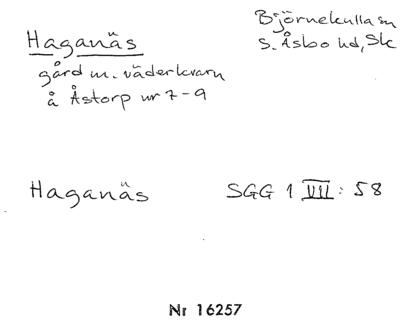 Haganäs
Björnekulla sn
S. Åsbo hd, Sk
gård m. väderkvarn
å Åstorp nr 7-9
Haganäs
SGG 1 VIII: 58
Nr 16257